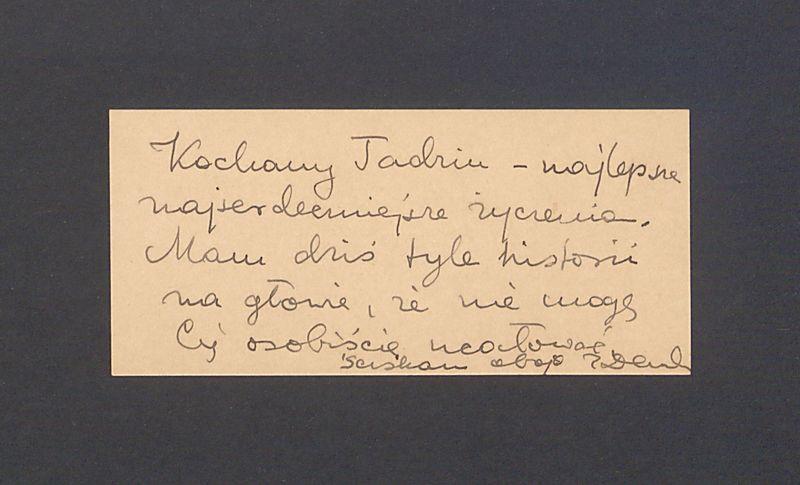 Kochany Tadziu – najlepsze
najserdeczniejsze życzenia.
Mam dziś tyle historii
na głowie, że nie mogę
Cię osobiście ucałować,
ściskam oboje